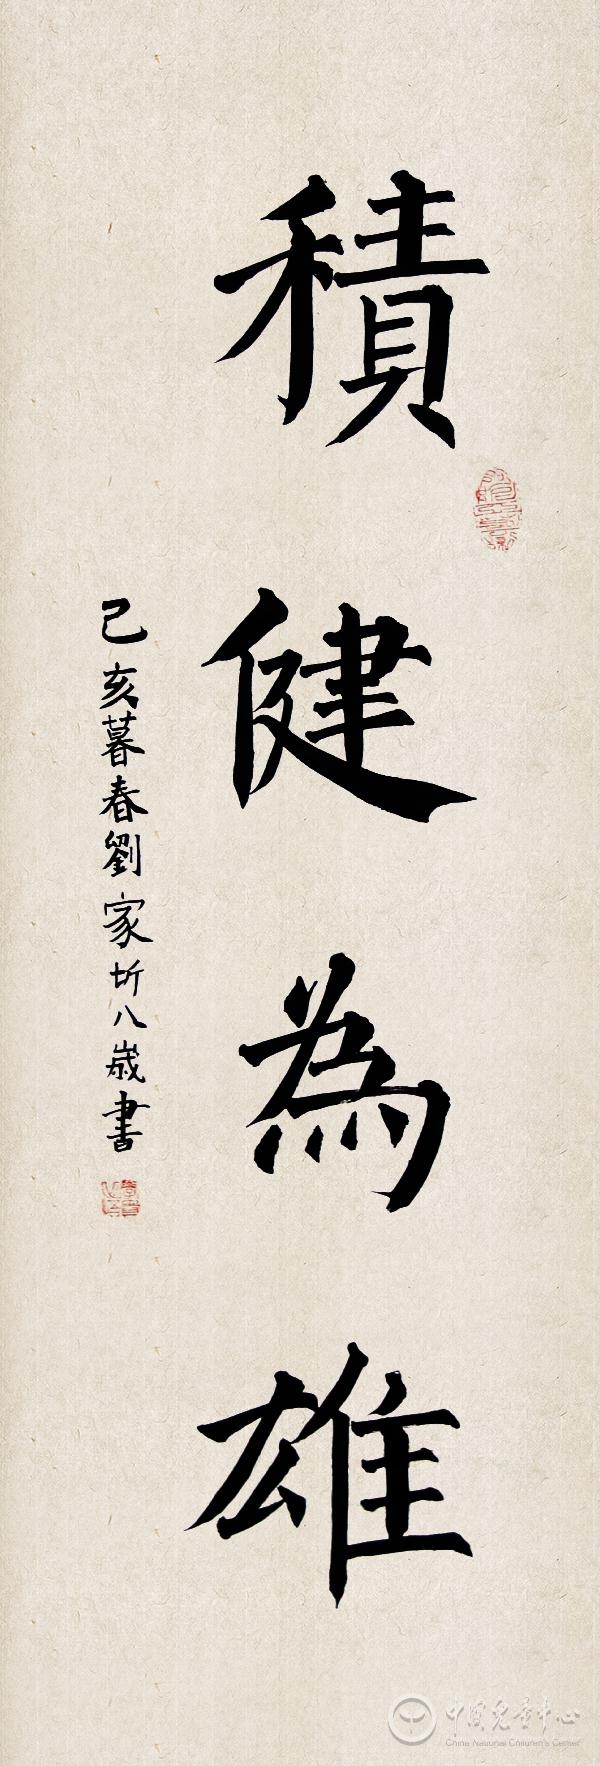 積健為雄
己亥暮春劉家圻八歲書
中国儿童中心
China National Children's Center